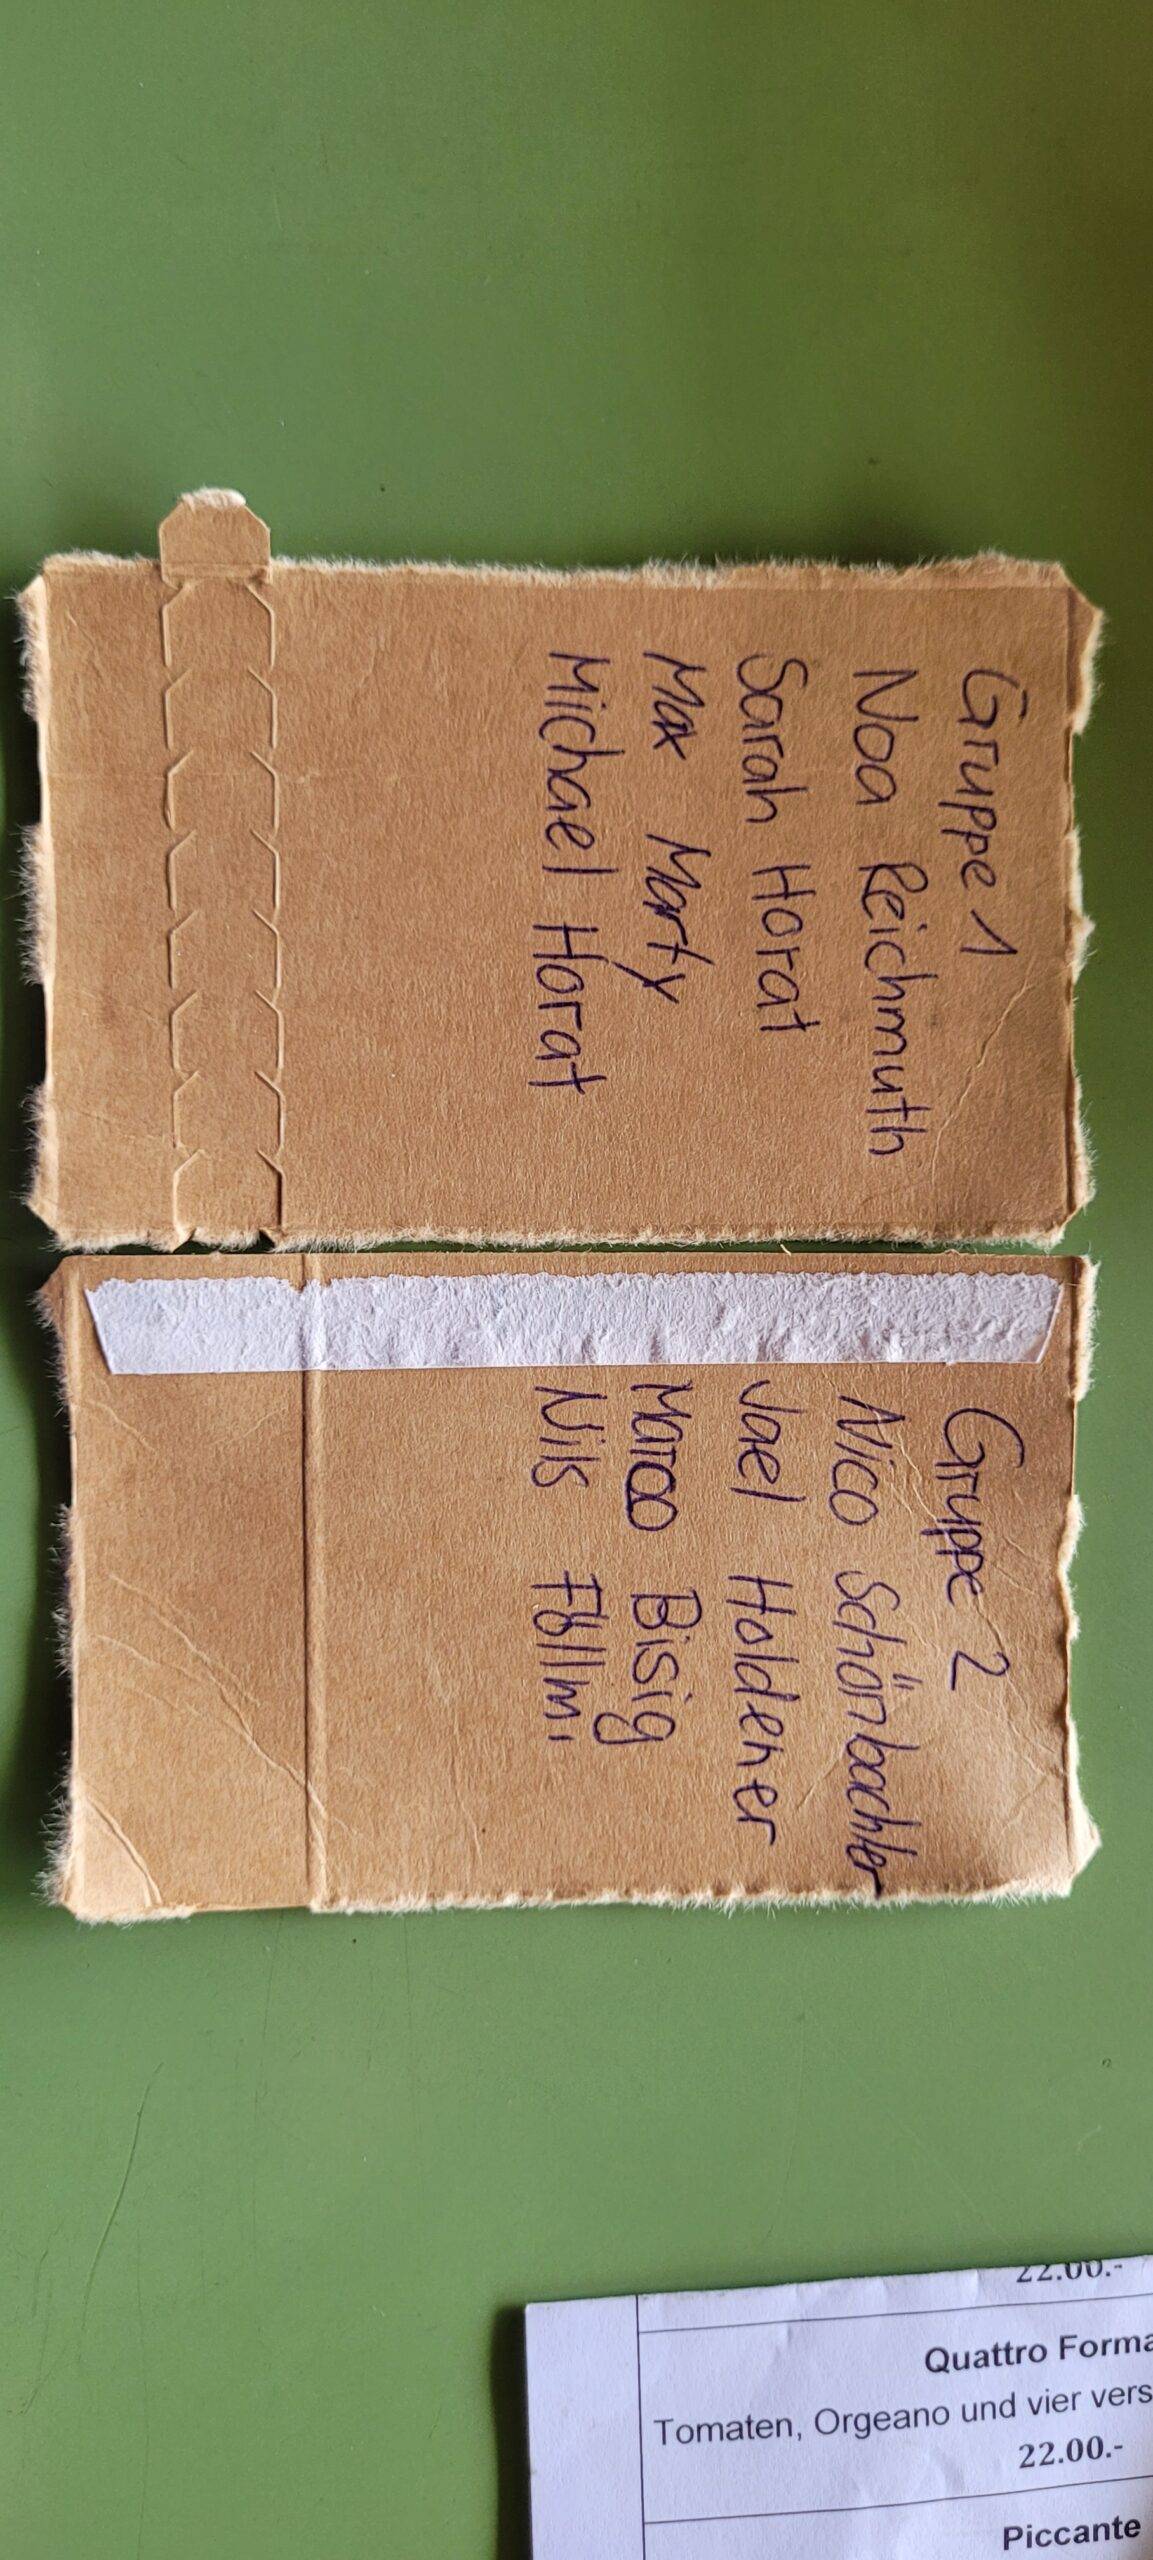 Gruppe 1
Noa Reichmuth
Sarah Horat
Max Marty
Michael Horat
Gruppe 2
Nico Schönbächler
Jael Holdener
Marco Bisig
Nils Föllmi
22.00.-
Quattro Forma
Tomaten, Orgeano und vier vers
22.00.-
Piccante